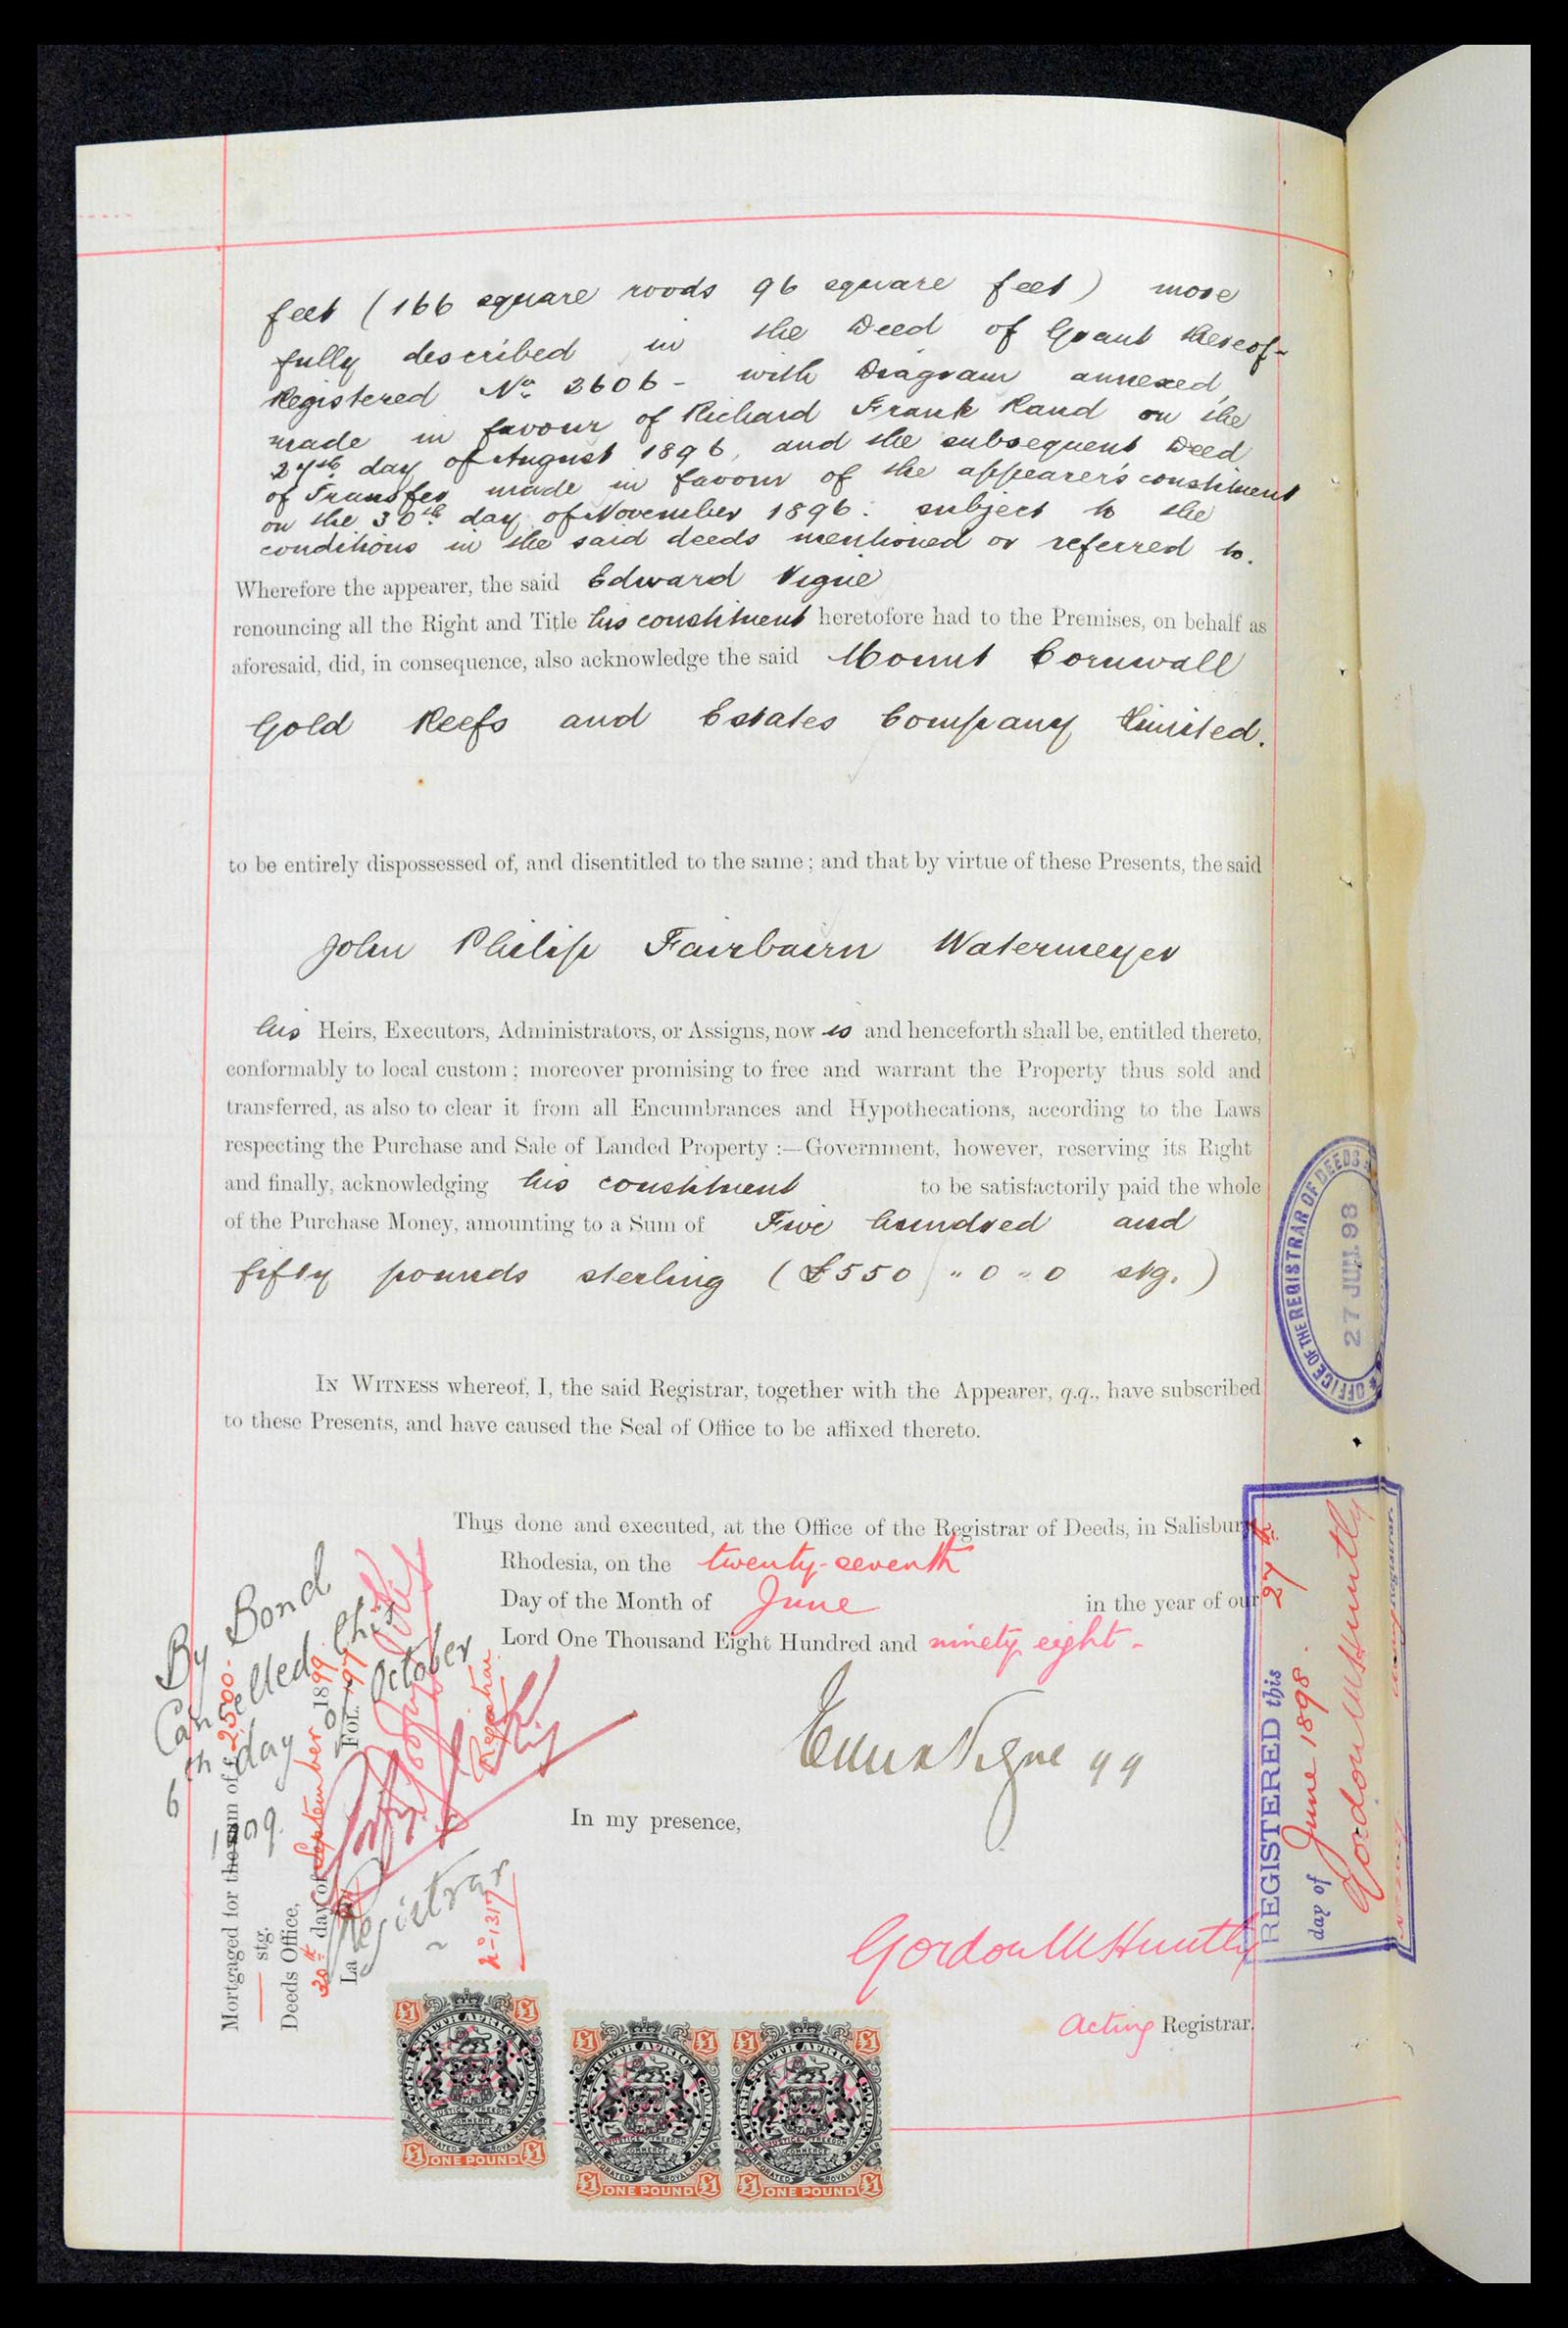 feet (166 square roods 96 square feet) more
fully described in the Deed of Grant thereof-
Registered No. 2606 - with Diagram annexed,
made in favour of Richard Frank Rand on the
27th day of August 1896, and the subsequent Deed
of Transfer made in favour of the appearer's constituent
on the 30th day of November 1896: subject to the
conditions in the said deeds mentioned or referred to.
Wherefore the appearer, the said Edward Vigne
renouncing all the Right and Title his constituent heretofore had to the Premises, on behalf as
aforesaid, did, in consequence, also acknowledge the said Mount Cornwall
Gold Reefs and Estates Company Limited.
to be entirely dispossessed of, and disentitled to the same; and that by virtue of these Presents, the said
John Philip Fairbairn Watermeyer
his Heirs, Executors, Administrators, or Assigns, now is and henceforth shall be, entitled thereto,
conformably to local custom; moreover promising to free and warrant the Property thus sold and
transferred, as also to clear it from all Encumbrances and Hypothecations, according to the Laws
respecting the Purchase and Sale of Landed Property :—Government, however, reserving its Right
and finally, acknowledging his constituent to be satisfactorily paid the whole
of the Purchase Money, amounting to a Sum of Five hundred and
fifty pounds sterling (£550 " 0 " 0 stg.)
IN WITNESS whereof, I, the said Registrar, together with the Appearer, q.q., have subscribed
to these Presents, and have caused the Seal of Office to be affixed thereto.
Thus done and executed, at the Office of the Registrar of Deeds, in Salisbury
Rhodesia, on the twenty-seventh
Day of the Month of June in the year of our
Lord One Thousand Eight Hundred and ninety eight -
Edward Vigne qq
In my presence,
Gordon M Huntly
Acting Registrar.
OFFICE OF THE REGISTRAR OF DEEDS
27 JUN. 98
REGISTERED this 27th
day of June 1898.
Gordon M Huntly
Acting Registrar.
Mortgaged for the sum of £2500-
stg.
Deeds Office,
20th day of September 1899
FOL. 197
Registrar
No 1317
By Bond
Cancelled this
6th day of October
1909.
Registrar
£1 £1
BRITISH SOUTH AFRICA COMPANY
JUSTICE FREEDOM
COMMERCE
INCORPORATED ROYAL CHARTER
£1 ONE POUND £1
£1 £1
BRITISH SOUTH AFRICA COMPANY
JUSTICE FREEDOM
COMMERCE
INCORPORATED ROYAL CHARTER
£1 ONE POUND £1
£1 £1
BRITISH SOUTH AFRICA COMPANY
JUSTICE FREEDOM
COMMERCE
INCORPORATED ROYAL CHARTER
£1 ONE POUND £1